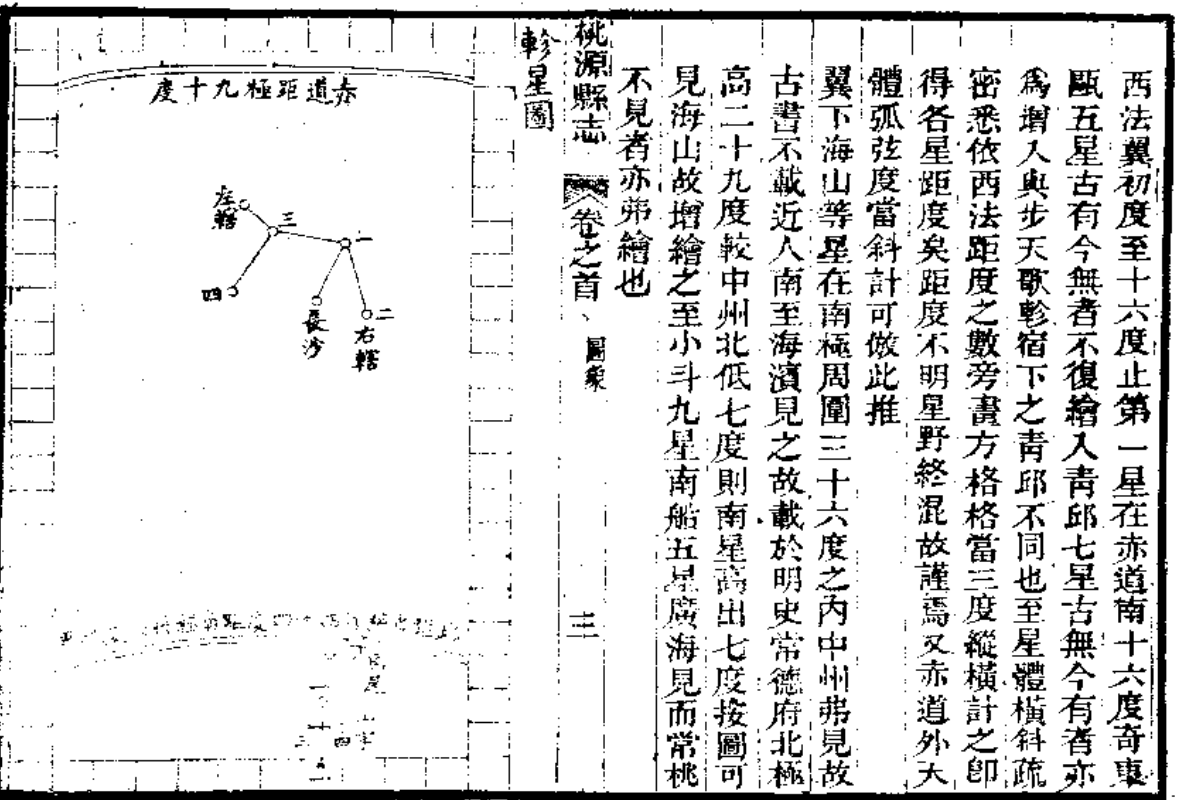 西法翼初度至十六度止第一星在赤道南十六度奇東
甌五星古有今無者不復繪入靑邱七星古無今有者亦
爲增入與步天歌軫宿下之靑邱不同也至星體橫斜疏
密悉依西法距度之數旁畫方格格當三度縱橫計之卽
得各星距度矣距度不明星野終混故謹焉又赤道外大
體弧弦度當斜計可倣此推
翼下海山等星在南極周圍三十六度之內中州弗見故
古書不載近人南至海濱見之故載於明史常德府北極
高二十九度較中州北低七度則南星高出七度按圖可
見海山故增繪之至小斗九星南船五星廣海見而常桃
不見者亦弗繪也
桃源縣志
卷之首
圖象
三
軫星圖
赤道距極九十度
一
二
右轄
長沙
三
左轄
四